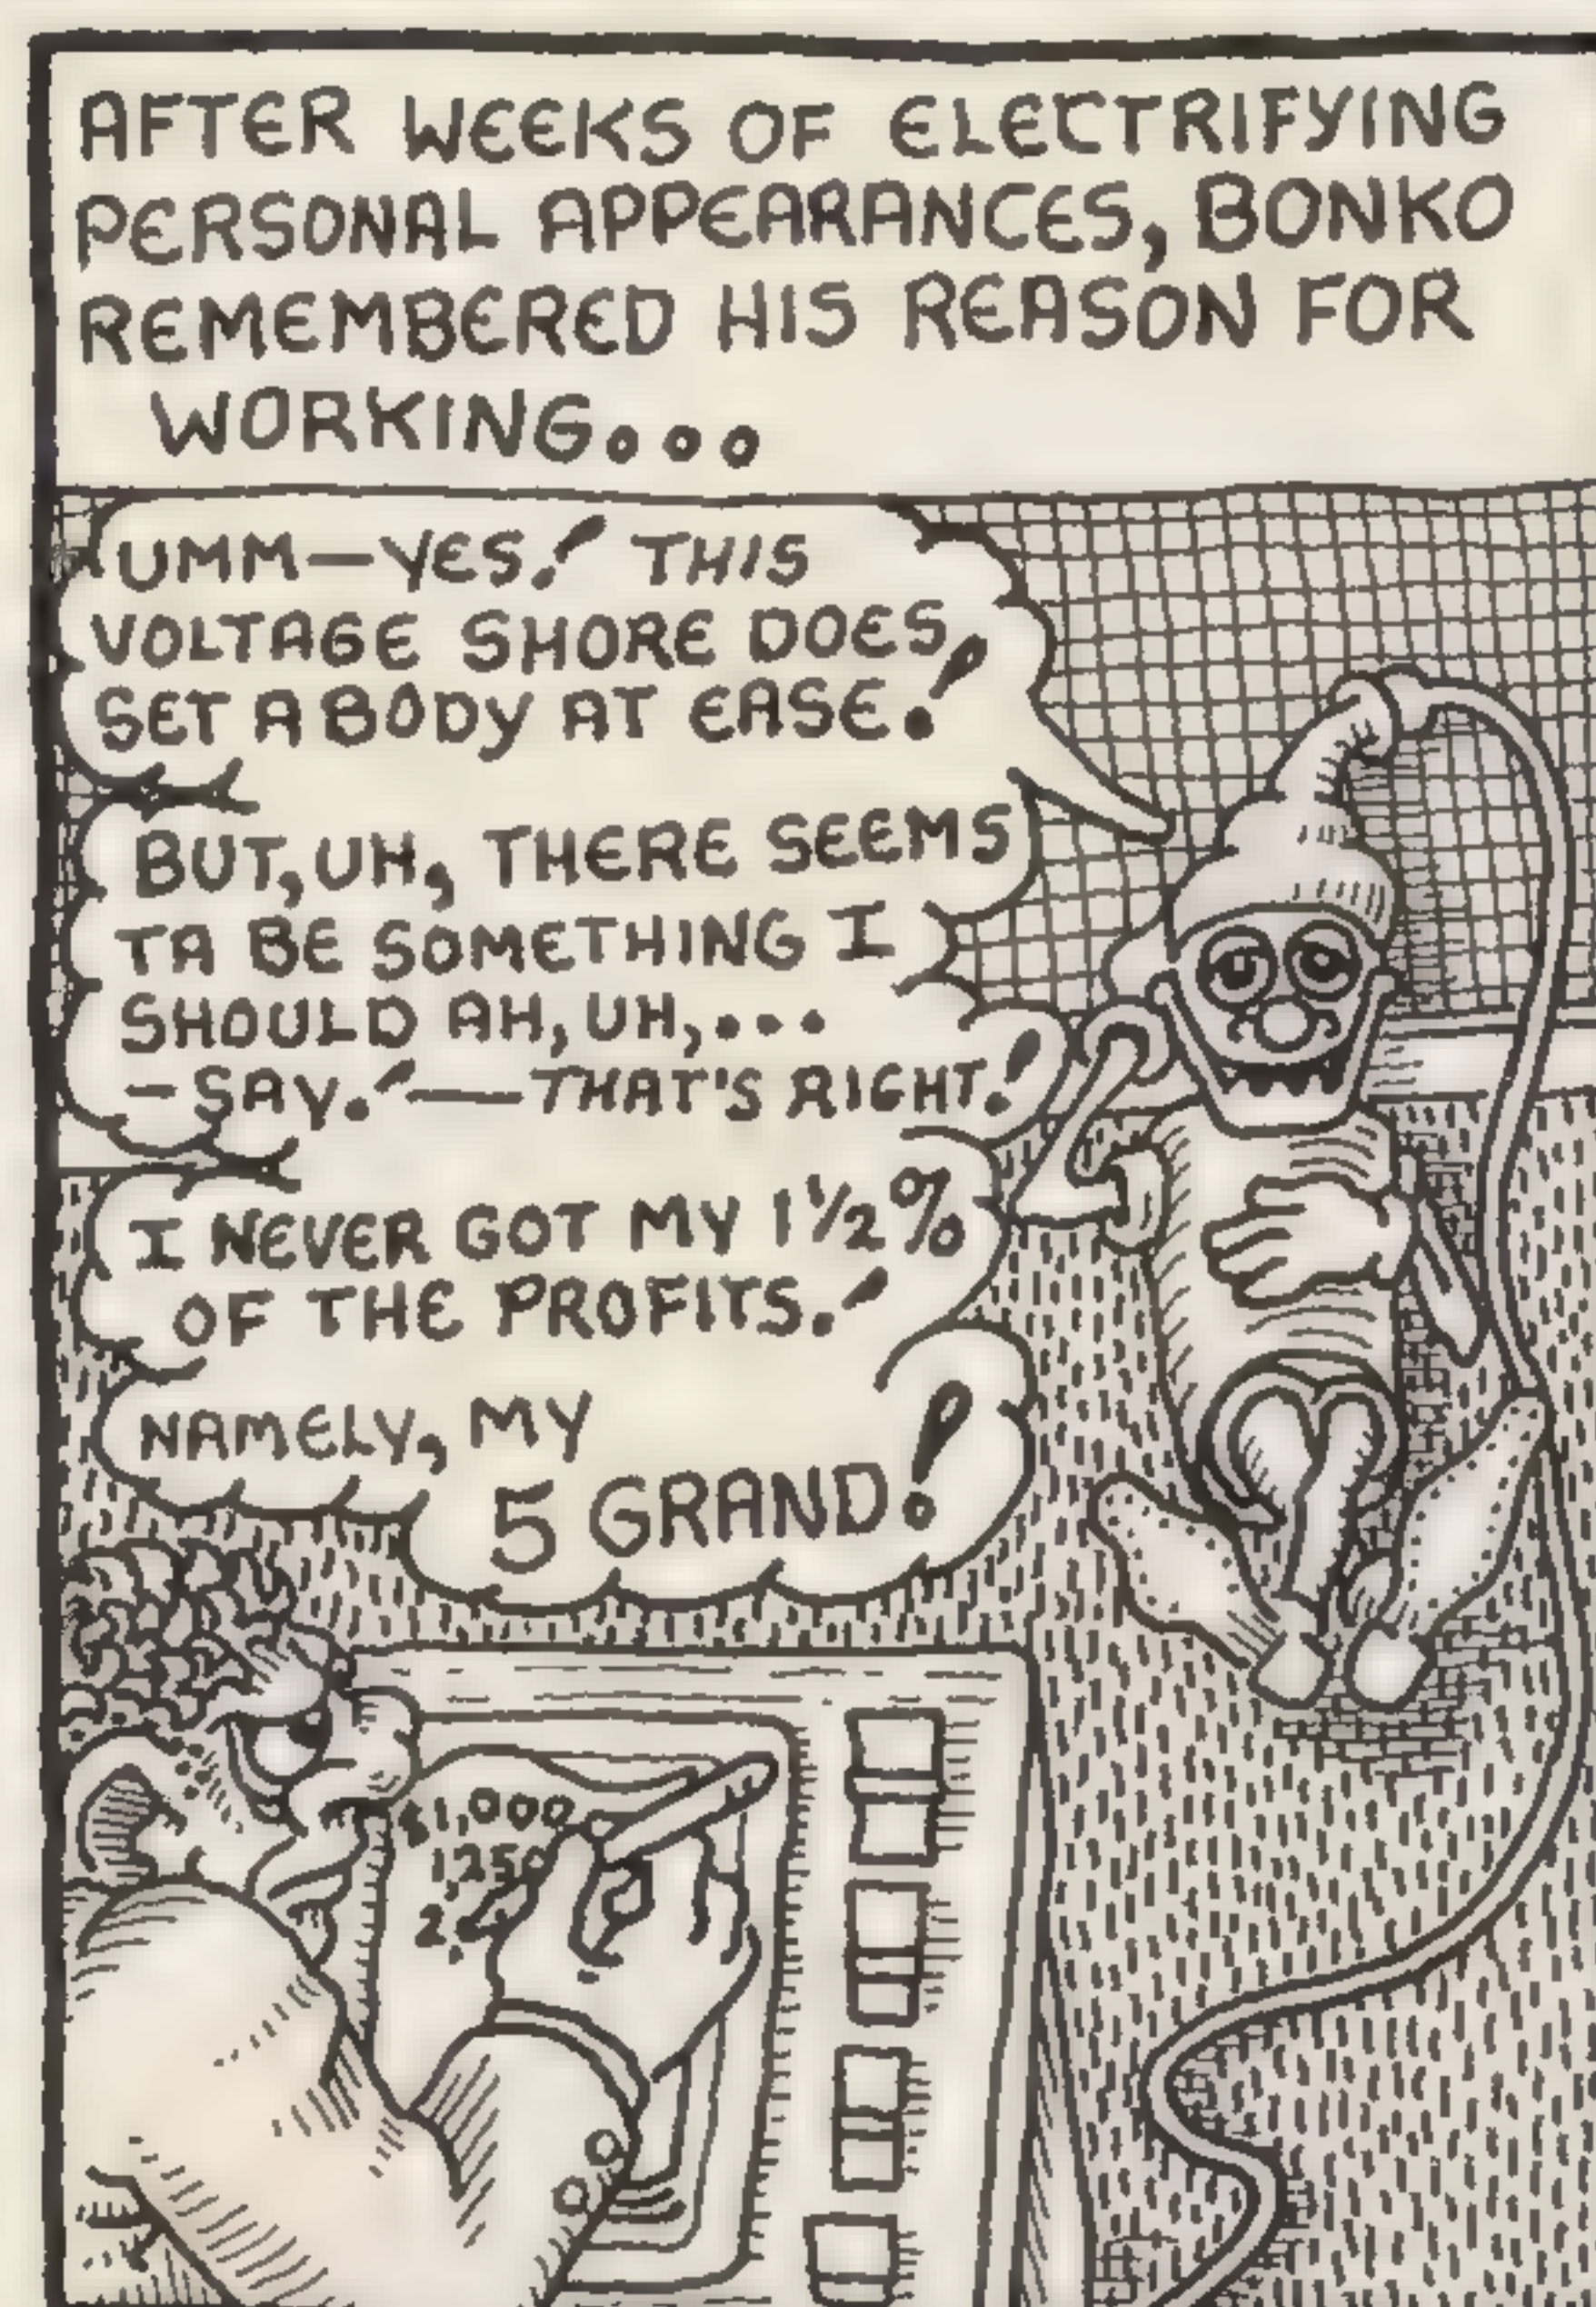 AFTER WEEKS OF ELECTRIFYING
PERSONAL APPEARANCES, BONKO
REMEMBERED HIS REASON FOR
WORKING...
UMM—YES! THIS
VOLTAGE SHORE DOES
SET A BODY AT EASE!
BUT, UH, THERE SEEMS
TA BE SOMETHING I
SHOULD AH, UH,...
-SAY!—THAT'S RIGHT!
I NEVER GOT MY 1½%
OF THE PROFITS!
NAMELY, MY
5 GRAND!
$1,000
1,250